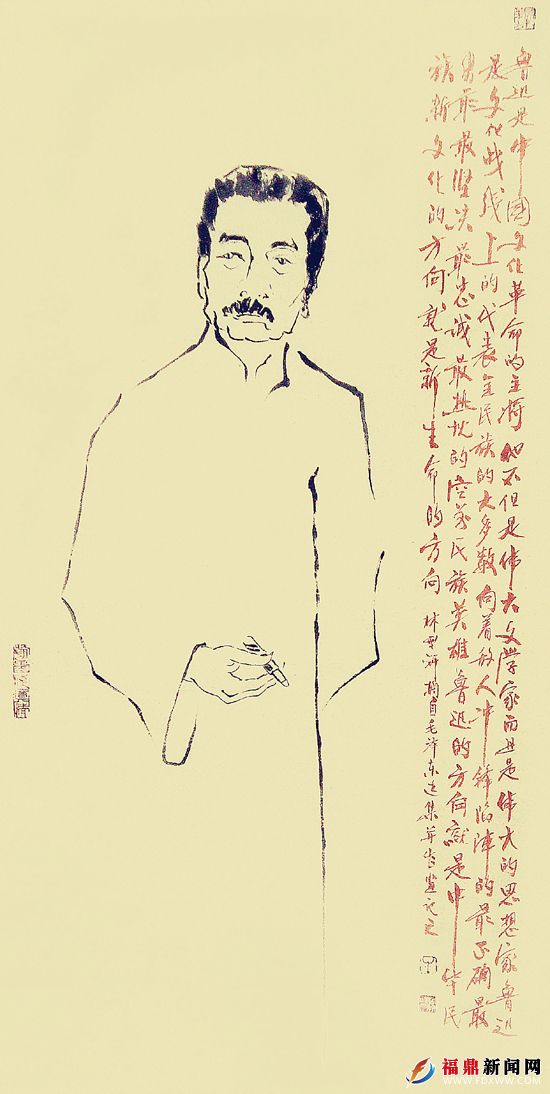 鲁迅是中国文化革命的主将他不但是伟大文学家而且是伟大的思想家鲁迅
是文化战线上的代表全民族的大多数向着敌人冲锋陷阵的最正确最
勇敢最坚决最忠诚最热忱的空前民族英雄鲁迅的方向就是中华民
族新文化的方向就是新生命的方向 林 摘自毛泽东选集并书画记之
福鼎新闻网
WWW.FDXWW.COM